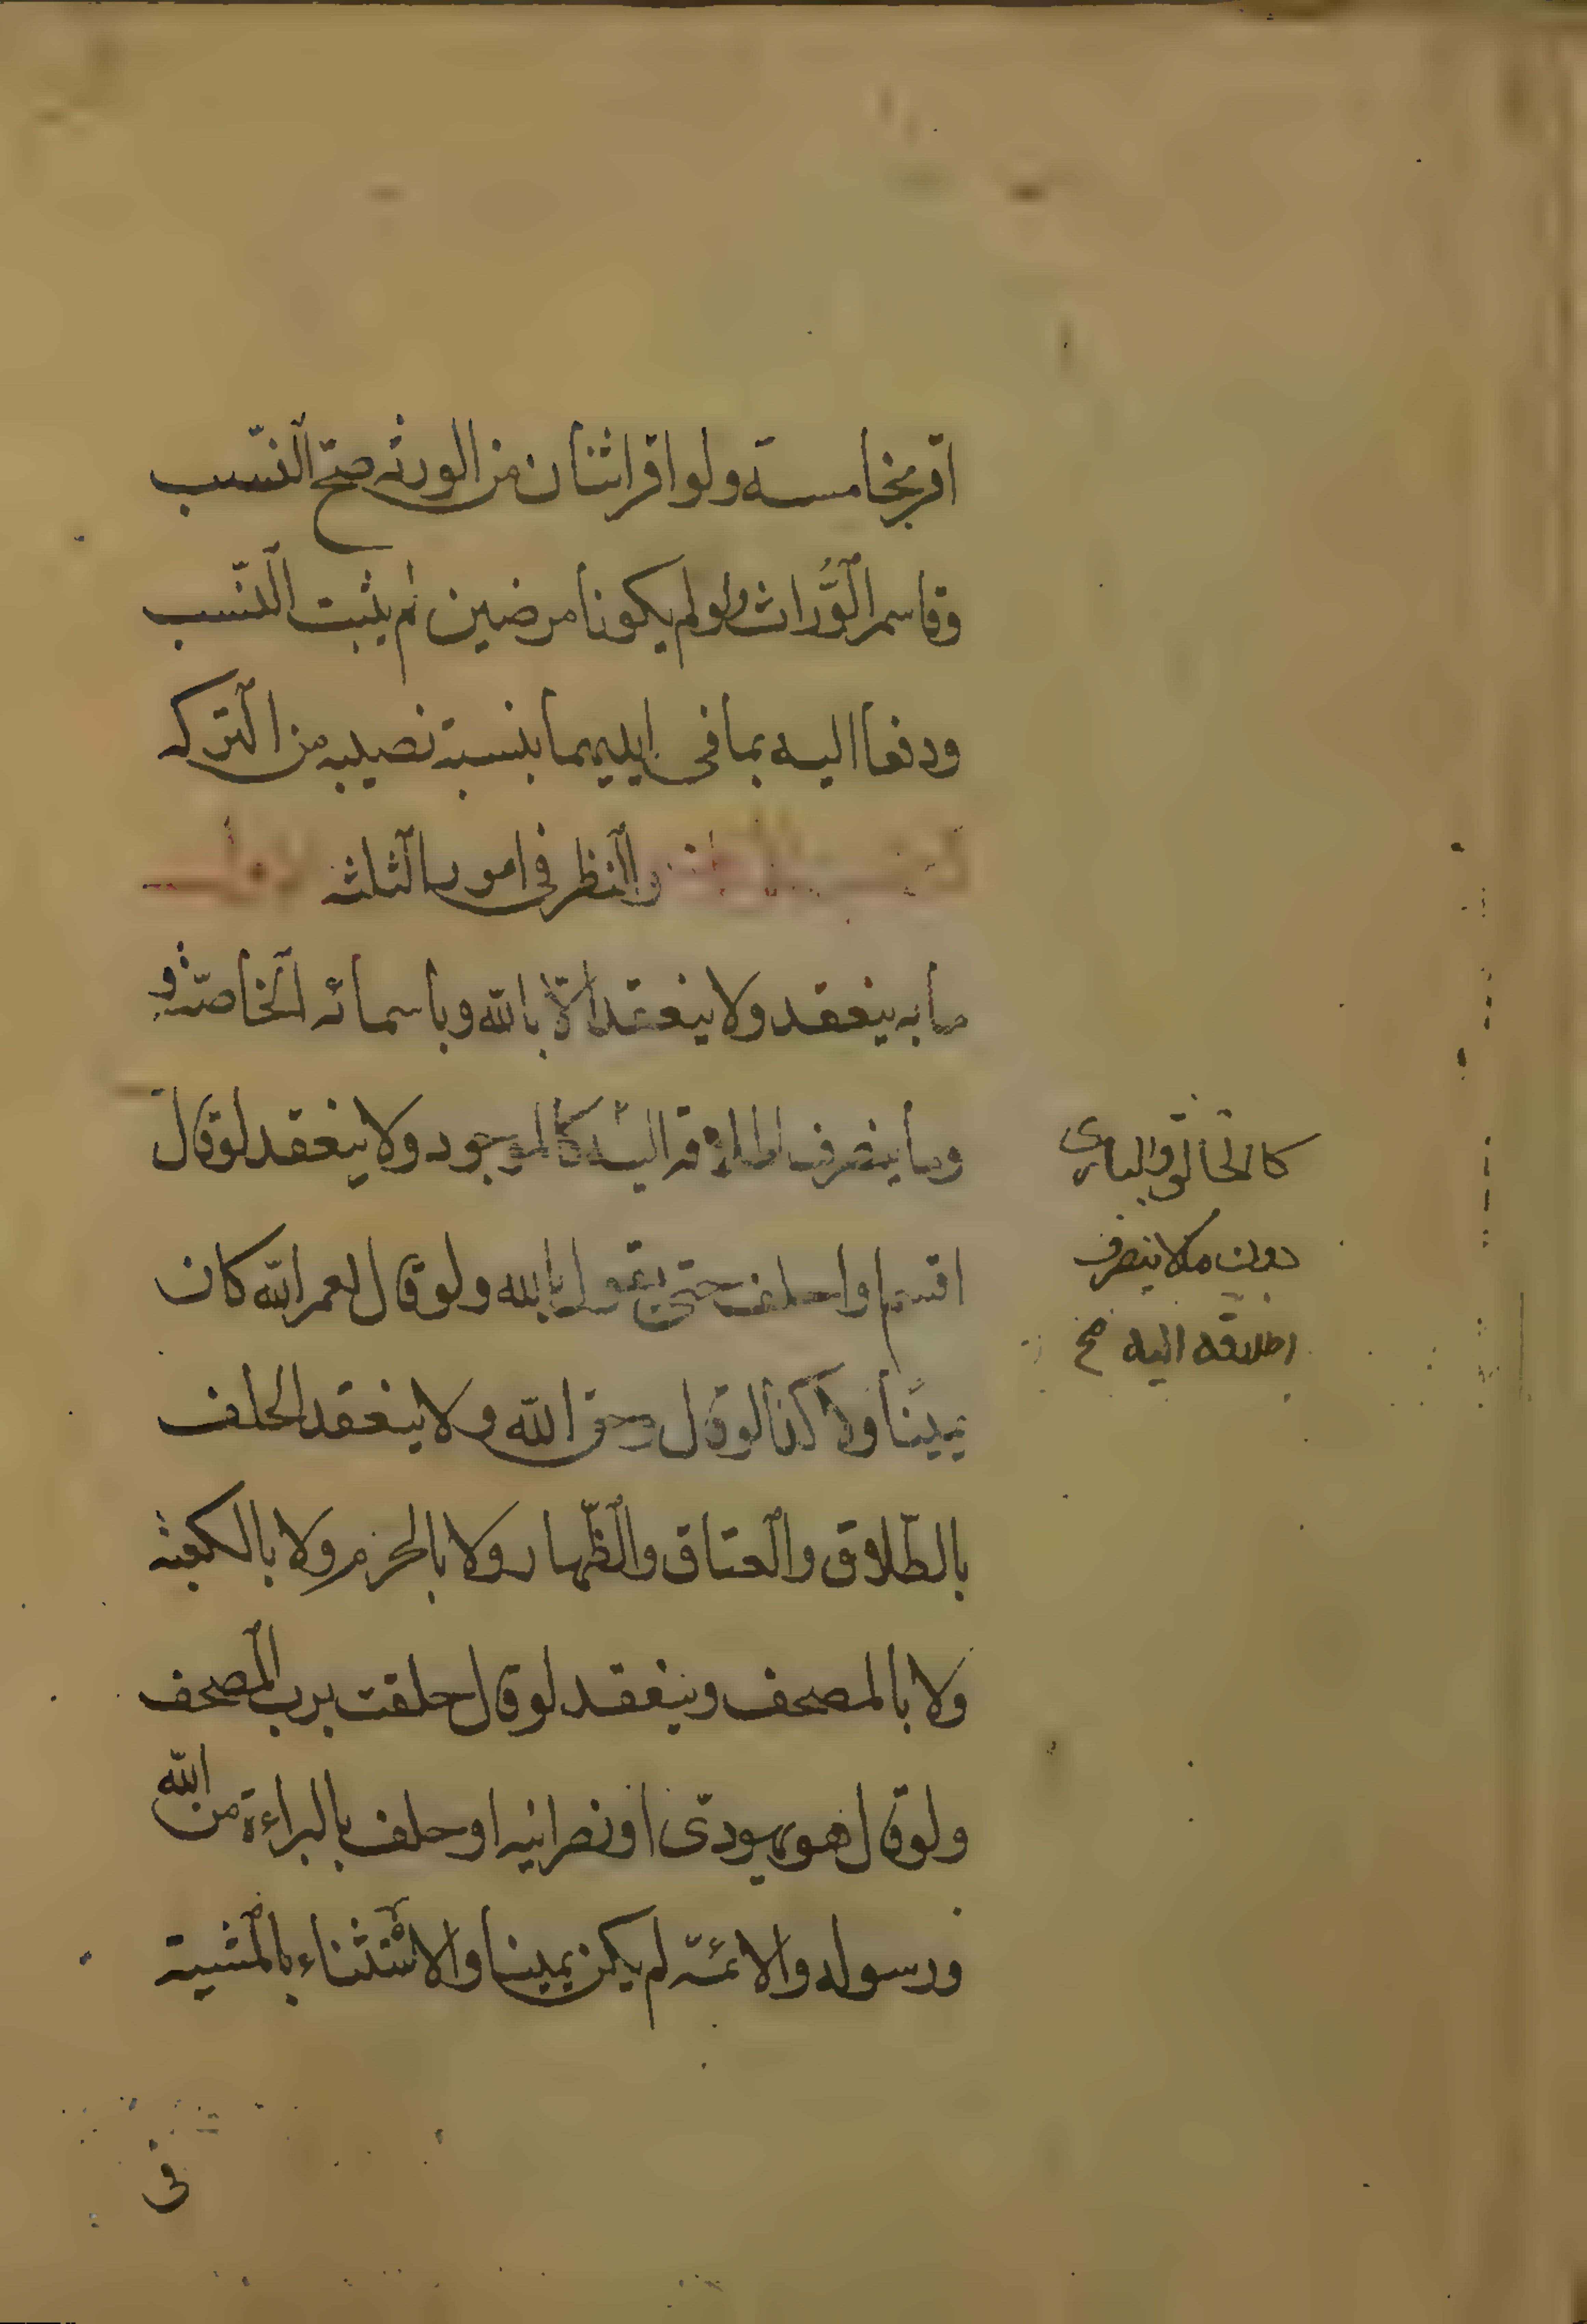 اقر بخامسة ولو اقر اثنان من الورثه صح النّسب
وقاسم الوُّراث ولو لم يكونا مرضيين لم يثبت النّسب
ودفعا اليه بما فى ايديهما بنسبة نصيبه من التّركه
والنّظر فى امور الثّلثه
ما به ينعقد ولا ينعقد الّا بالله وباسمائه الخاصّة و
وما ينصرف اطلاقه اليه كالموجود ولا ينعقد لو قال
اقسم او احلف حتى يقول بالله ولو قال لعمر الله كان
يمينًا ولا كذا لو قال وحق الله ولا ينعقد الحلف
بالطّلاق والعتاق والظّهار ولا بالحرم ولا بالكعبة
ولا بالمصحف وينعقد لو قال حلفت برب المصحف
ولو قال هو يهودىّ او نصرانيه او حلف بالبراءة من الله
ورسوله والائمّة لم يكن يمينا والاستثناء بالمشية
فى
كالخالق والبارى
دون ما لا ينصرف
اطلاقه اليه